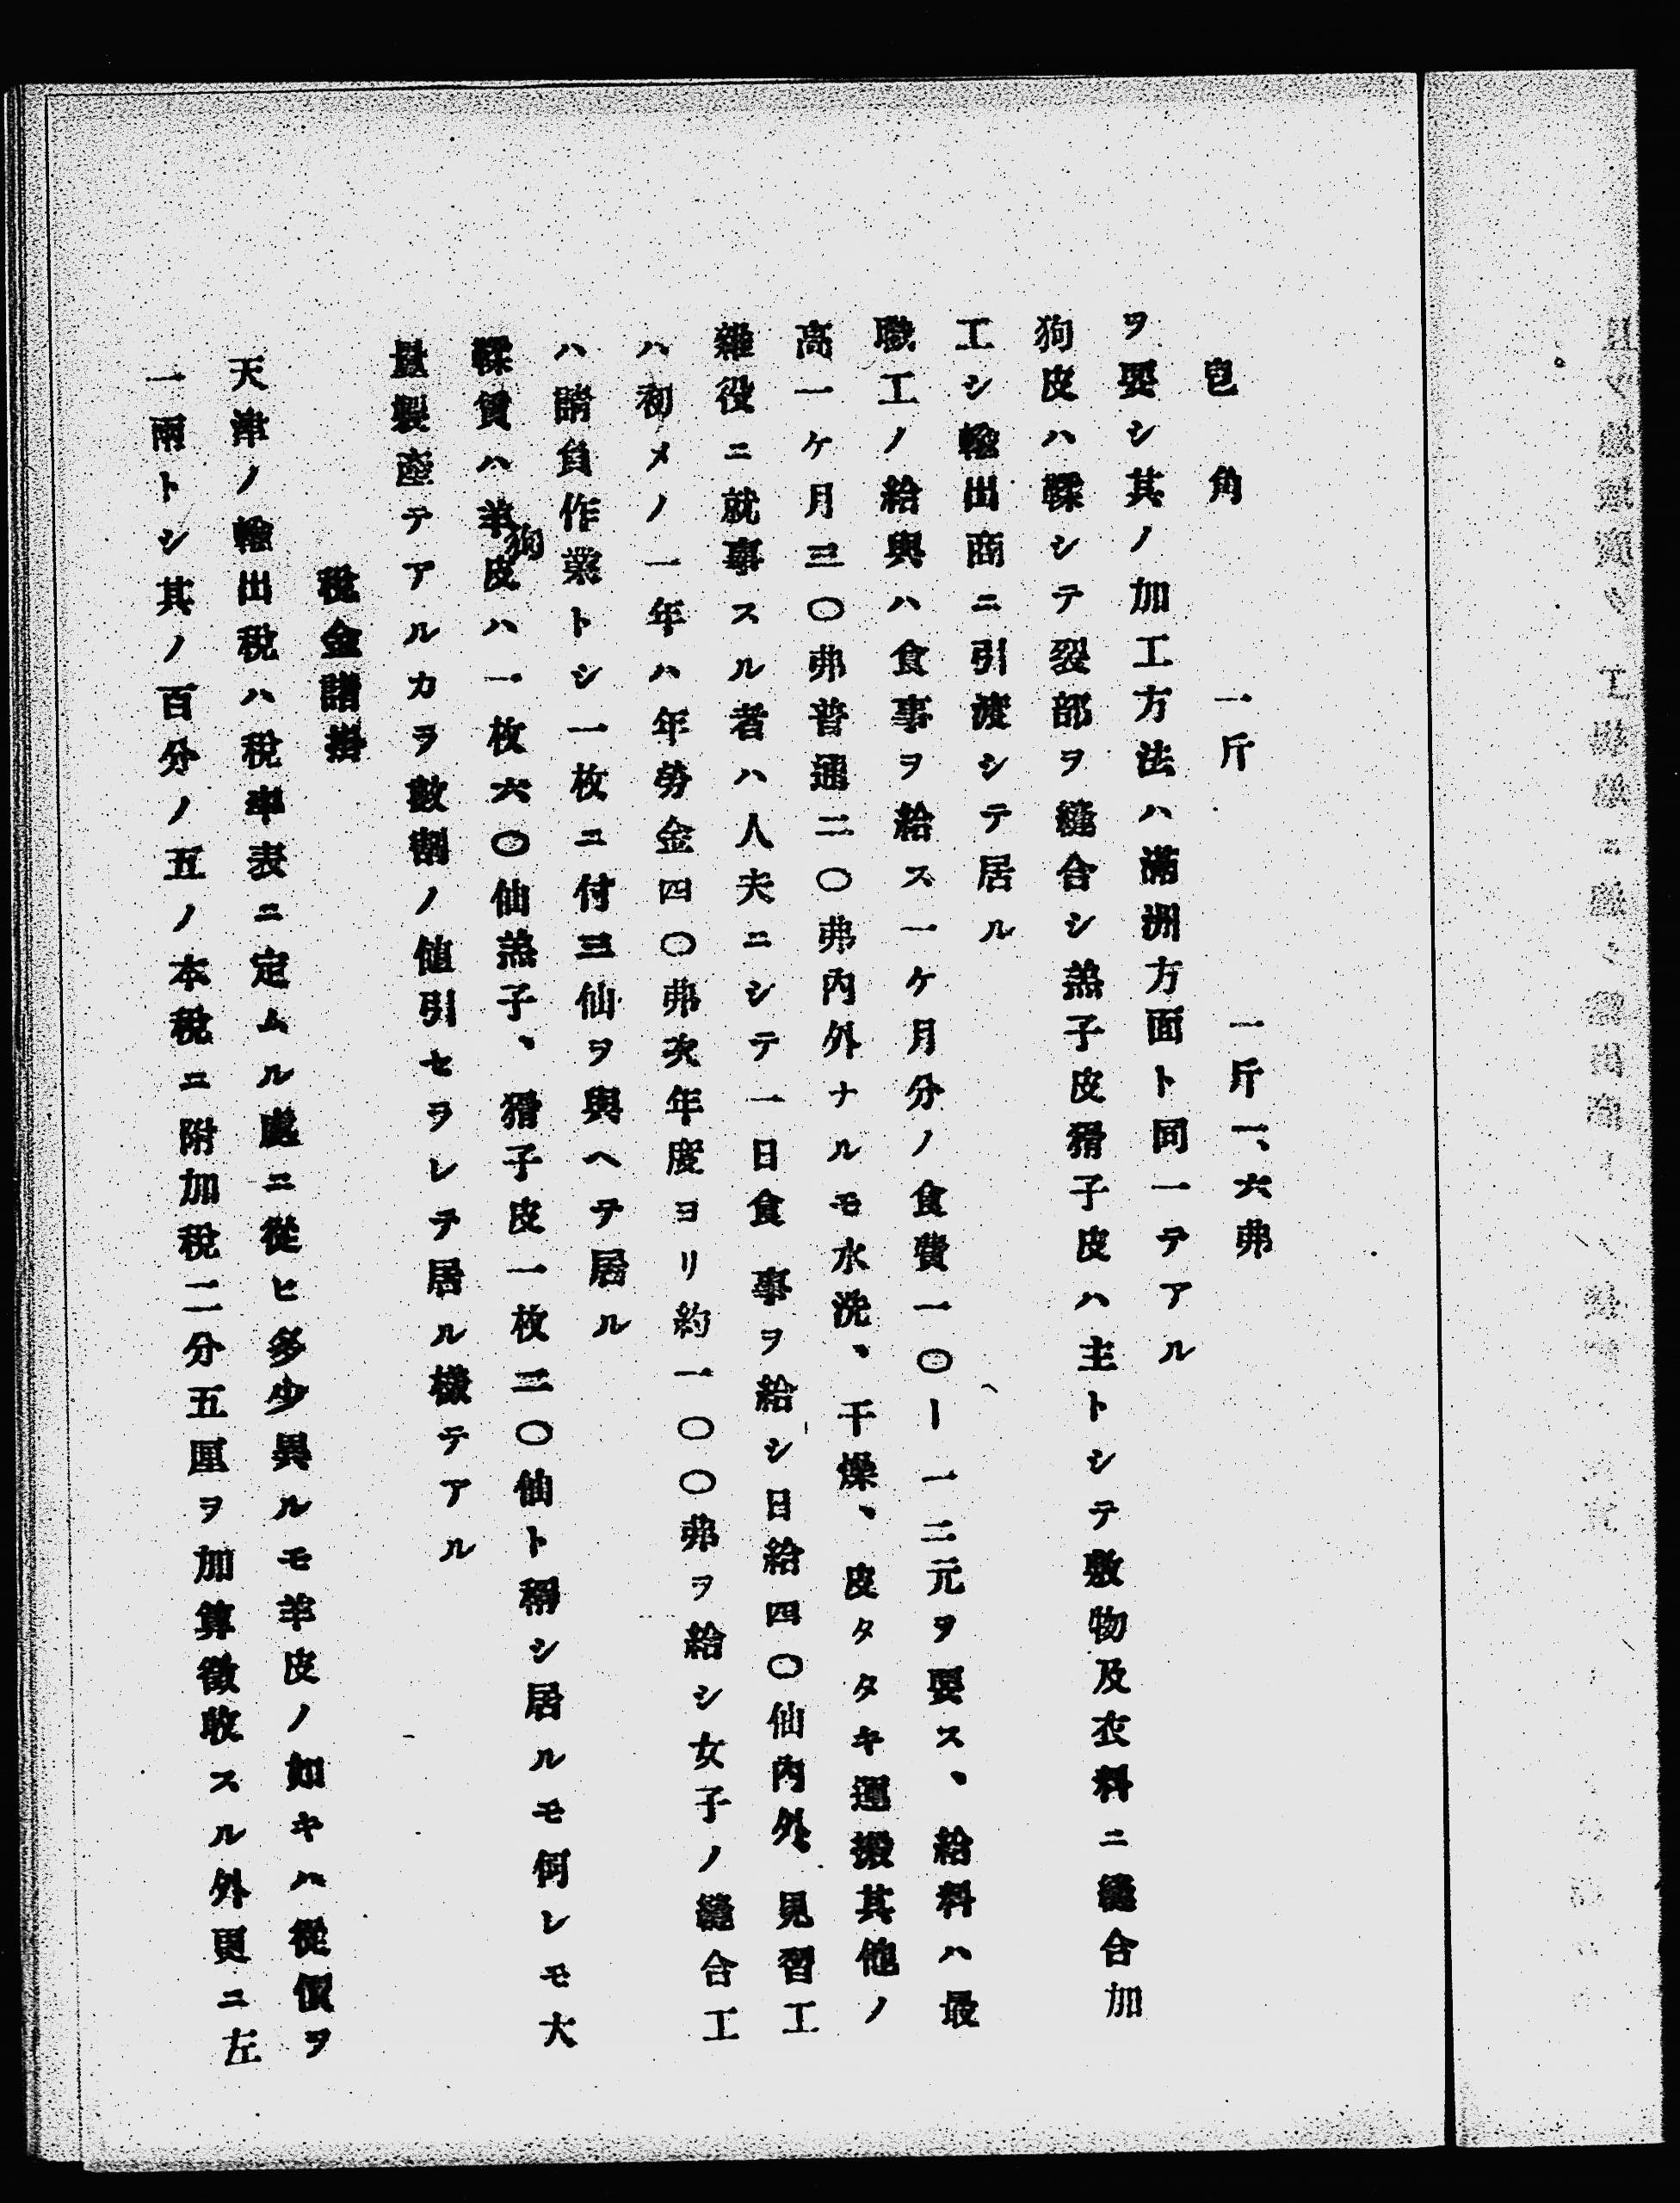 皀角　一斤　一斤一、六弗
ヲ要シ其ノ加工方法ハ滿洲方面ト同一テアル
狗皮ハ鞣シテ裂部ヲ縫合シ羔子皮猾子皮ハ主トシテ敷物及衣料ニ縫合加
工シ輸出商ニ引渡シテ居ル
職工ノ給與ハ食事ヲ給ス一ケ月分ノ食費一〇ー一二元ヲ要ス、給料ハ最
高一ケ月三〇弗普通二〇弗内外ナルモ水洗、干燥、皮タタキ運搬其他ノ
雜役ニ就事スル者ハ人夫ニシテ一日食事ヲ給シ日給四〇仙内外、見習工
ハ初メノ一年ハ年勞金四〇弗次年度ヨリ約一〇〇弗ヲ給シ女子ノ縫合工
ハ請負作業トシ一枚ニ付三仙ヲ與ヘテ居ル
鞣賃ハ羊狗皮ハ一枚六〇仙羔子、猾子皮一枚二〇仙ト稱シ居ルモ何レモ大
量製産テアルカラ數割ノ値引セヲレテ居ル樣テアル
税金諸掛
天津ノ輸出税ハ税率表ニ定ムル處ニ從ヒ多少異ルモ羊皮ノ如キハ從價ヲ
一兩トシ其ノ百分ノ五ノ本税ニ附加税二分五厘ヲ加算徵收スル外更ニ左